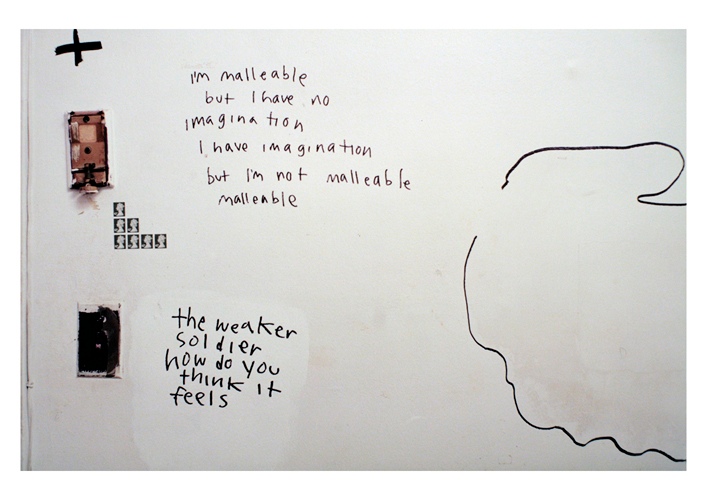 i'm malleable
but I have no
imagination
I have imagination
but I'm not malleable
malleable
the weaker
soldier
how do you
think it
feels